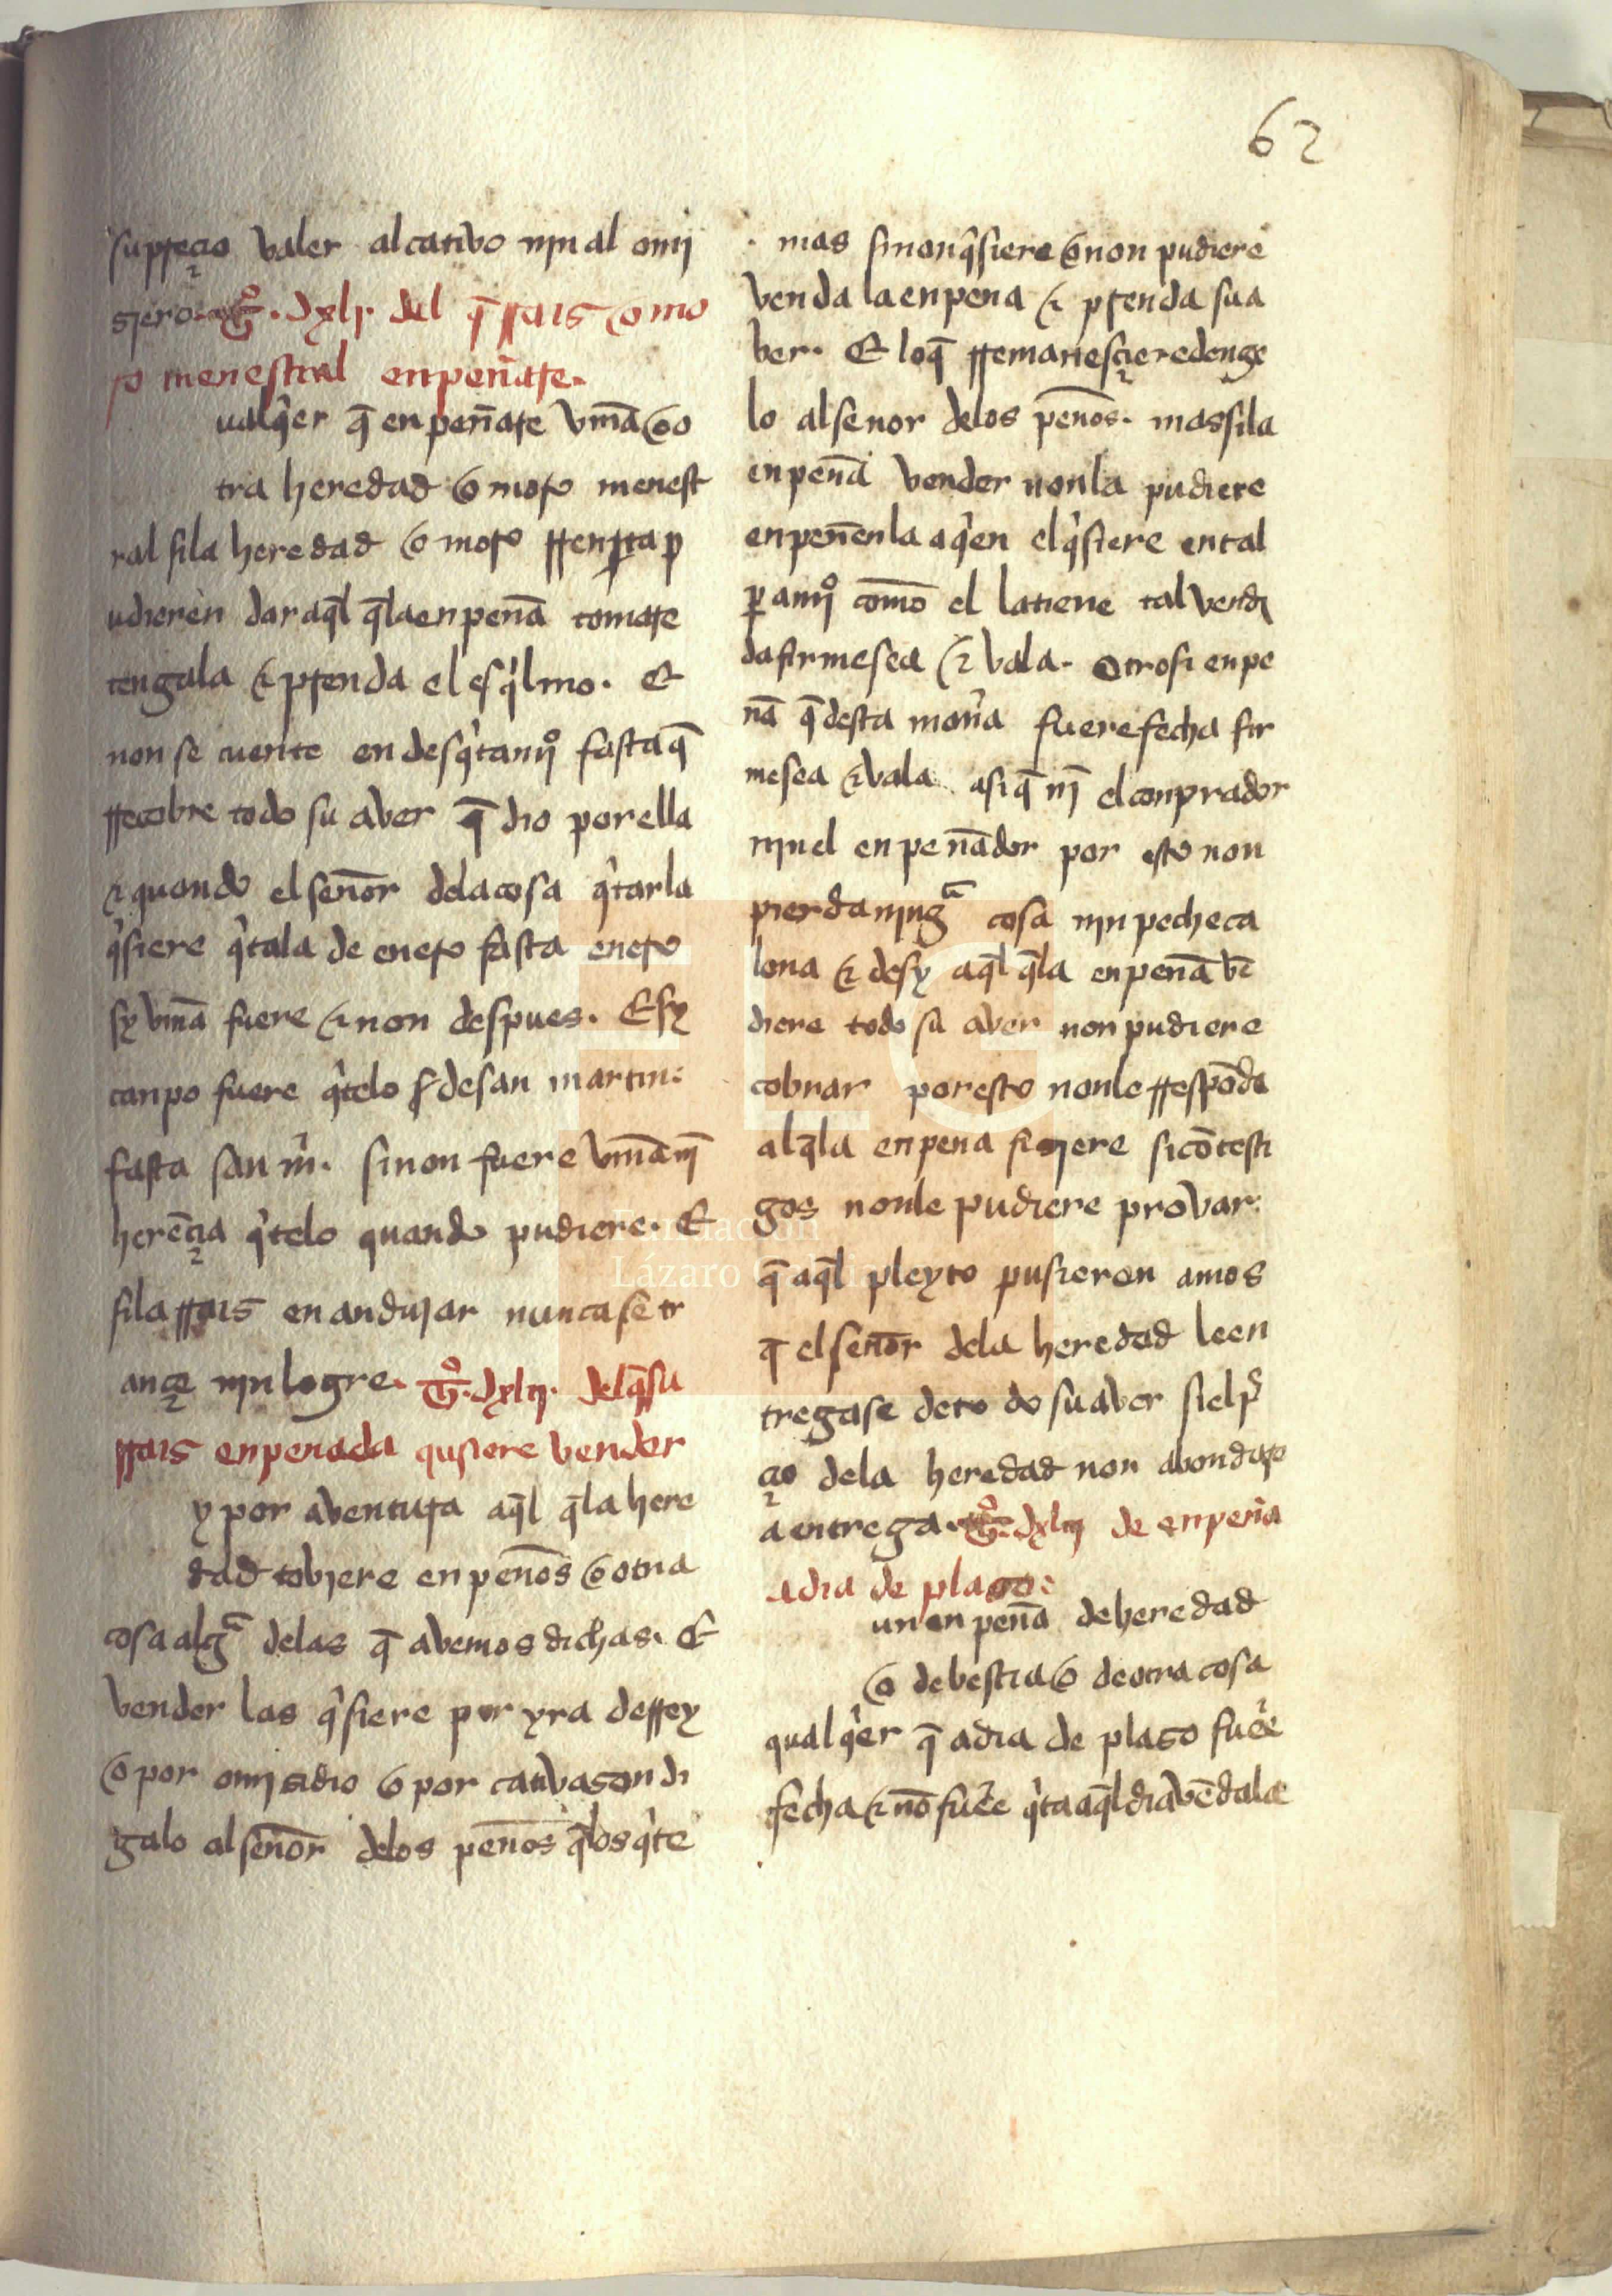 62
su preçio valer al cativo nin al omi
siero. tº. dxlj. del q̄ rrais o mo
ro menestral enpeñare.
ualqͥer q̄ enpeñare vin̄a o o
tra heredad o moro menest
ral si la heredad o moro rrenta p
udieren dar aql̄ q̄ la enpen̄a tomare
tengala ⁊ prenda el esqͥlmo. Et
non se cuente en desqͥtamjº fasta q̄
rrecobre todo su aver q̄ dio por ella
⁊ quando el sen̄or dela cosa qͥtarla
qͥsiere qͥtala de enero fasta enero
sy vin̄a fuere ⁊ non despues. E sy
canpo fuere qͥtelo de san martin
fasta san m̄. si non fuere vin̄a nj̄
herēçia qͥtelo quando pudiere. E
si la rrais en andujar nunca se tr
ançe nin logre. tº. dxlij. del q̄ su
rrais enpenada qusiere vender
y por aventura aql̄ q̄ la here
dad tobiere en pen̄os o otra
cosa algª delas q̄ avemos dichas. E
vender las qͥsiere por yra de rrey
o por omisidio o por cativason di
galo al sen̄or delos pen̄os q̄ los qͥte
mas si non qͥsiere o non pudiere
venda la enpena ⁊ prenda su a
ver. E lo q̄ rremanesçiere denge
lo al senor delos pen̄os. mas si la
enpen̄a vender non la pudiere
enpen̄enla a qͥen el qͥsiere en tal
paramjº com̄o el la tiene tal vendi
da firme sea ⁊ vala. otrosi enpe
n̄a q̄ desta man̄a fuere fecha fir
me sea ⁊ vala. asi q̄ nj̄ el conprador
nin el enpen̄ador por esto non
pierda ningª cosa nin peche ca
lona ⁊ desy aql̄ q̄ la enpen̄a vē
diere todo su aver non pudiere
cobrar por esto non le rrespōda
al q̄ la enpena fisiere si cō testi
gos non le pudiere provar.
q̄ aql̄ pleyto pusieron amos
q̄ el sen̄or dela heredad le en
tregase de to do su aver si el p͛
çio dela heredad non abondaro
a entrega. tº. dxliij de enpen̄a
a dia de plaso:
un enpen̄a de heredad
o de bestia o de otra cosa
qualqͥer q̄ a dia de plaso fuēe
fecha ⁊ nō fuēe qͥta aql̄ dia vēdala
Fundación
Lázaro